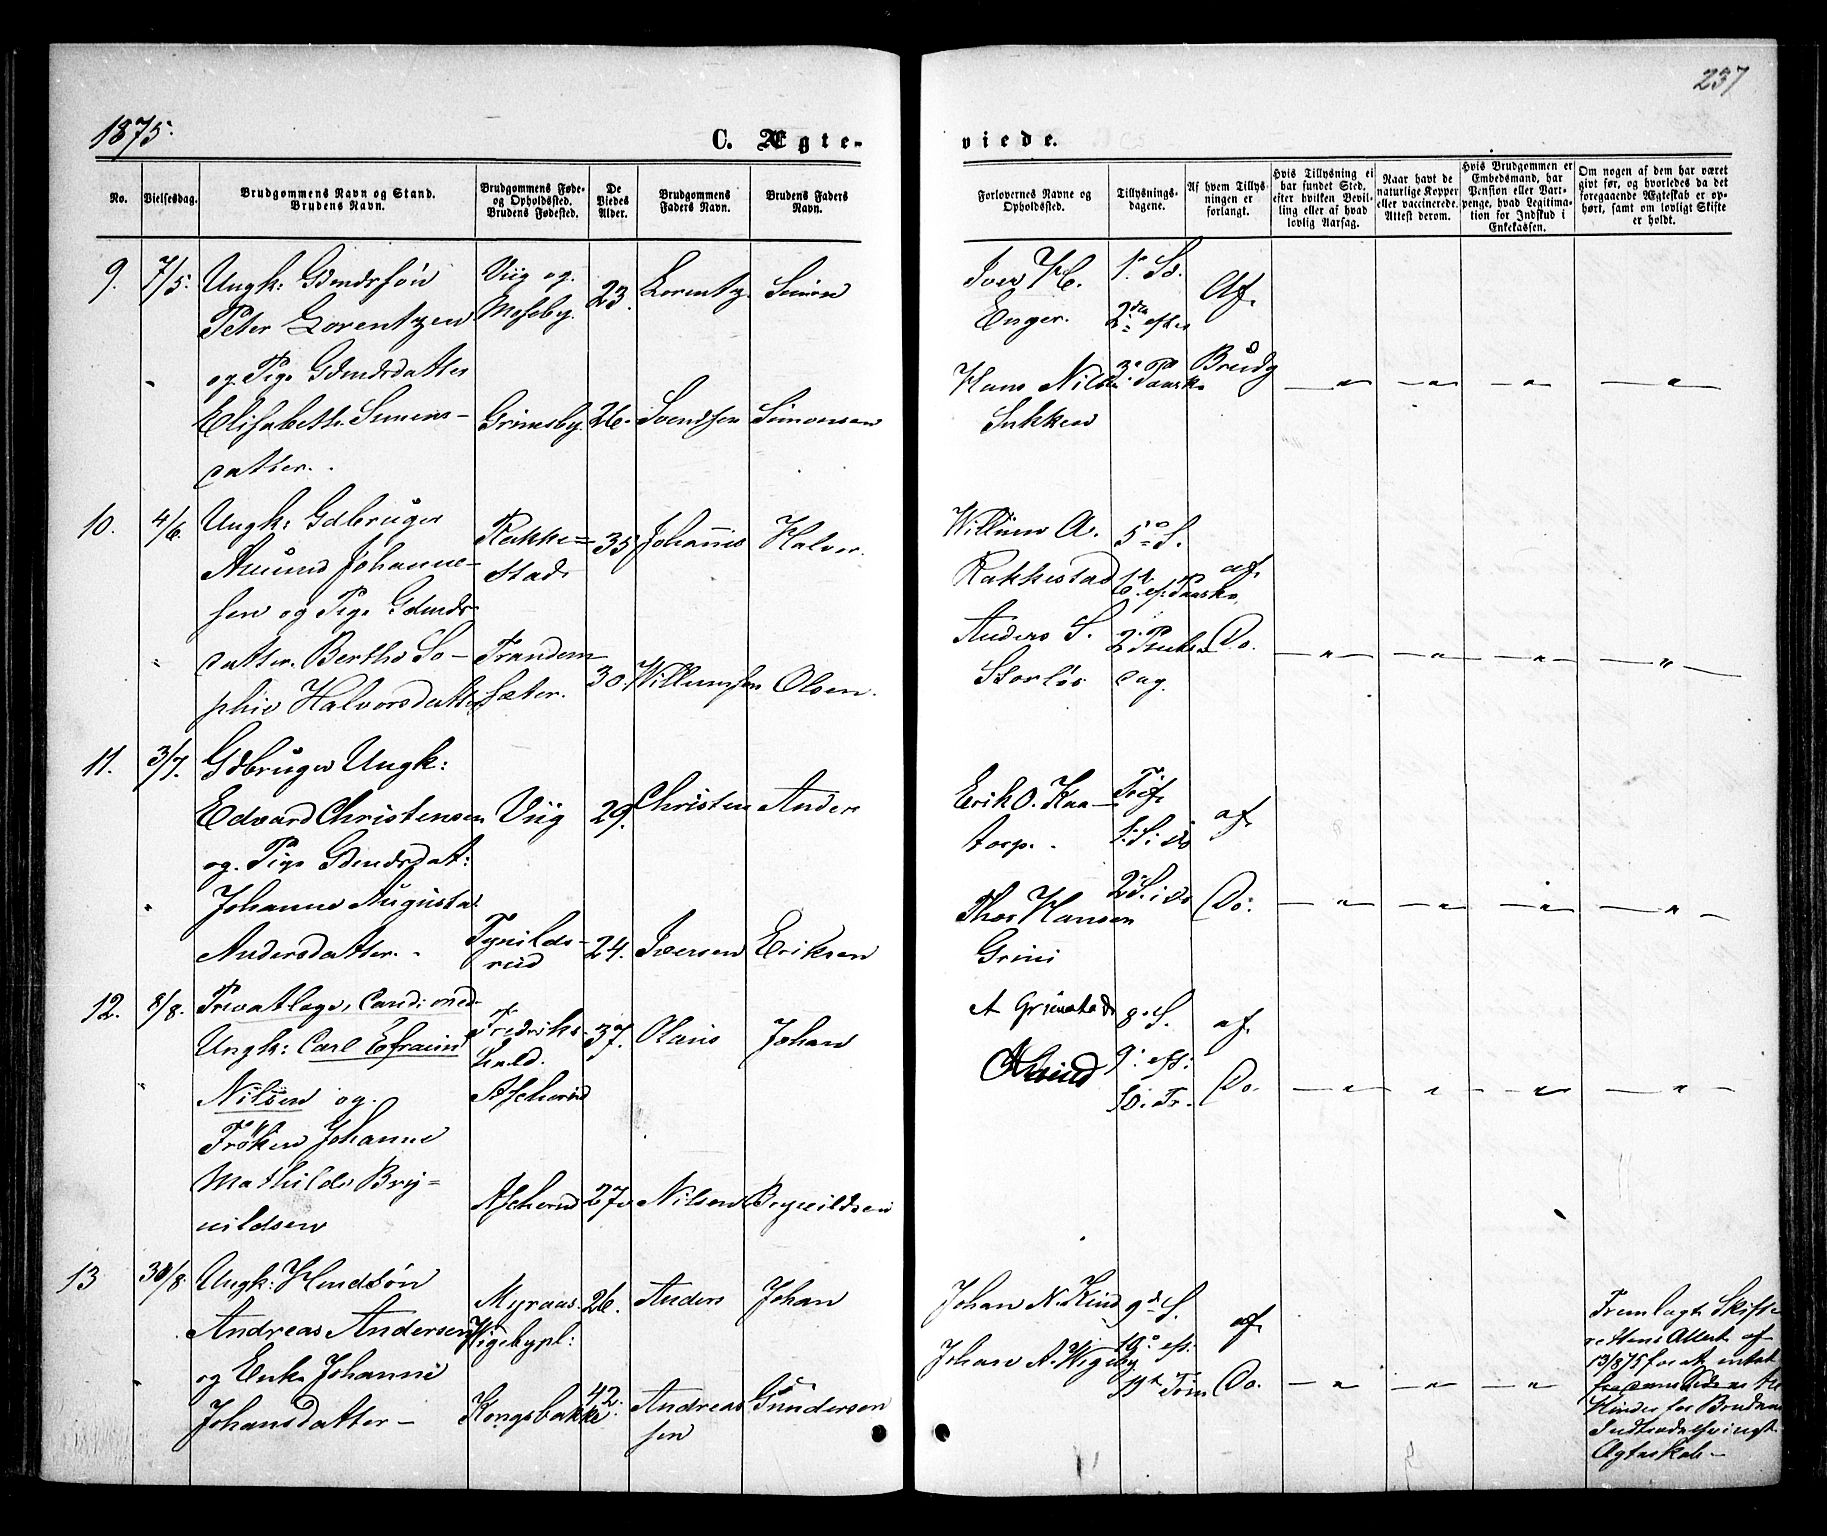 237
1875.
C. Ægte-
viede.
No.
Vielsesdag.
Brudgommens Navn og Stand.
Brudens Navn.
Brudgommens Føde-
og Opholdssted.
Brudens Fødested.
De
Viedes
Alder.
Brudgommens
Faders Navn.
Brudens Faders
Navn.
Forlovernes Navne og
Opholdssted.
Tillysnings-
dagene.
Af hvem Tillys-
ningen er
forlangt.
Hvis Tillysning ei
har fundet Sted,
efter hvilken Bevil-
ling eller af hvad
lovlig Aarsag.
Naar havt de
naturlige Kopper
eller vaccinerede.
Attest derom.
Hvis Brudgommen er
Embedsmand, har
Pension eller Vart-
penge, hvad Legitima-
tion for Indskud i
Enkekassen.
Om nogen af dem har været
givt før, og hvorledes da det
foregaaende Ægteskab er op-
hørt, samt om lovligt Skifte
er holdt.
9. 7/5. Ungk: Gdmdssøn
Peter Lorentzen
og Pige Gdmdsdatter
Elisabeth Simens-
datter.
Viig og
Moseby.
Grimsby.
23.
26.
Lorentz
Svendsen
Simen
Simonsen
Iver H.
Enger.
Hans Nils
1. S.
2den efter
3. Paaske
Af
Brudg
10. 4/6. Ungk: Gdbruger
Amund Johanne-
sen og Pige Gdmds-
datter Berthe So-
phie Halvorsdatter
Rakke=
stad
Trandem-
sæter.
35
30.
Johannes
Willumsen
Halvor
Olsen.
Willum A.
Rakkestad
Anders S.
Storløs
5. S.
6. ef. Paaske
2. Pintse
dag.
af
Do.
11. 3/7. Gdbruger Ungk:
Edvard Christensen
og Pige Gdmdsdat:
Johanne Augusta
Andersdatter.
Viig
29.
24.
Christen
Iversen
Anders
Eriksen
Erik O. Kaa-
torp.
Thor Hansen
Grini
Trif.
1. S. i do
2. S. i do
af
Do.
12. 8/8. Privatlæge, Cand: med.
Ungk: Carl Efraim
Nilsen og
Frøken Johanne
Mathilde Bry=
nildsen
Fredriks-
hald.
Askerud
Askerud
37.
27
Olaus
Nilsen
Johan
Brynildsen
A Grimstad
8. S.
9. eft:
10. Tr.
af
Do.
13 30/8. Ungk: Hmdsøn
Andreas Andersen
og Enke Johanne
Johansdatter -
Myraas
Wigebypl:
Kongsbakke
26.
42.
Anders
Andreas
sen
Johan
Gundersen
Johan N. Kind
Johan A. Wigeby
9de S.
10. eft:
11te Trin
af
Do.
Fremlagt Skifte
rettens Attest af
13/8 75 for at intet
fra dens Side er til
Hinder for Brudens
Indtrædelse i nyt
Ægteskab -